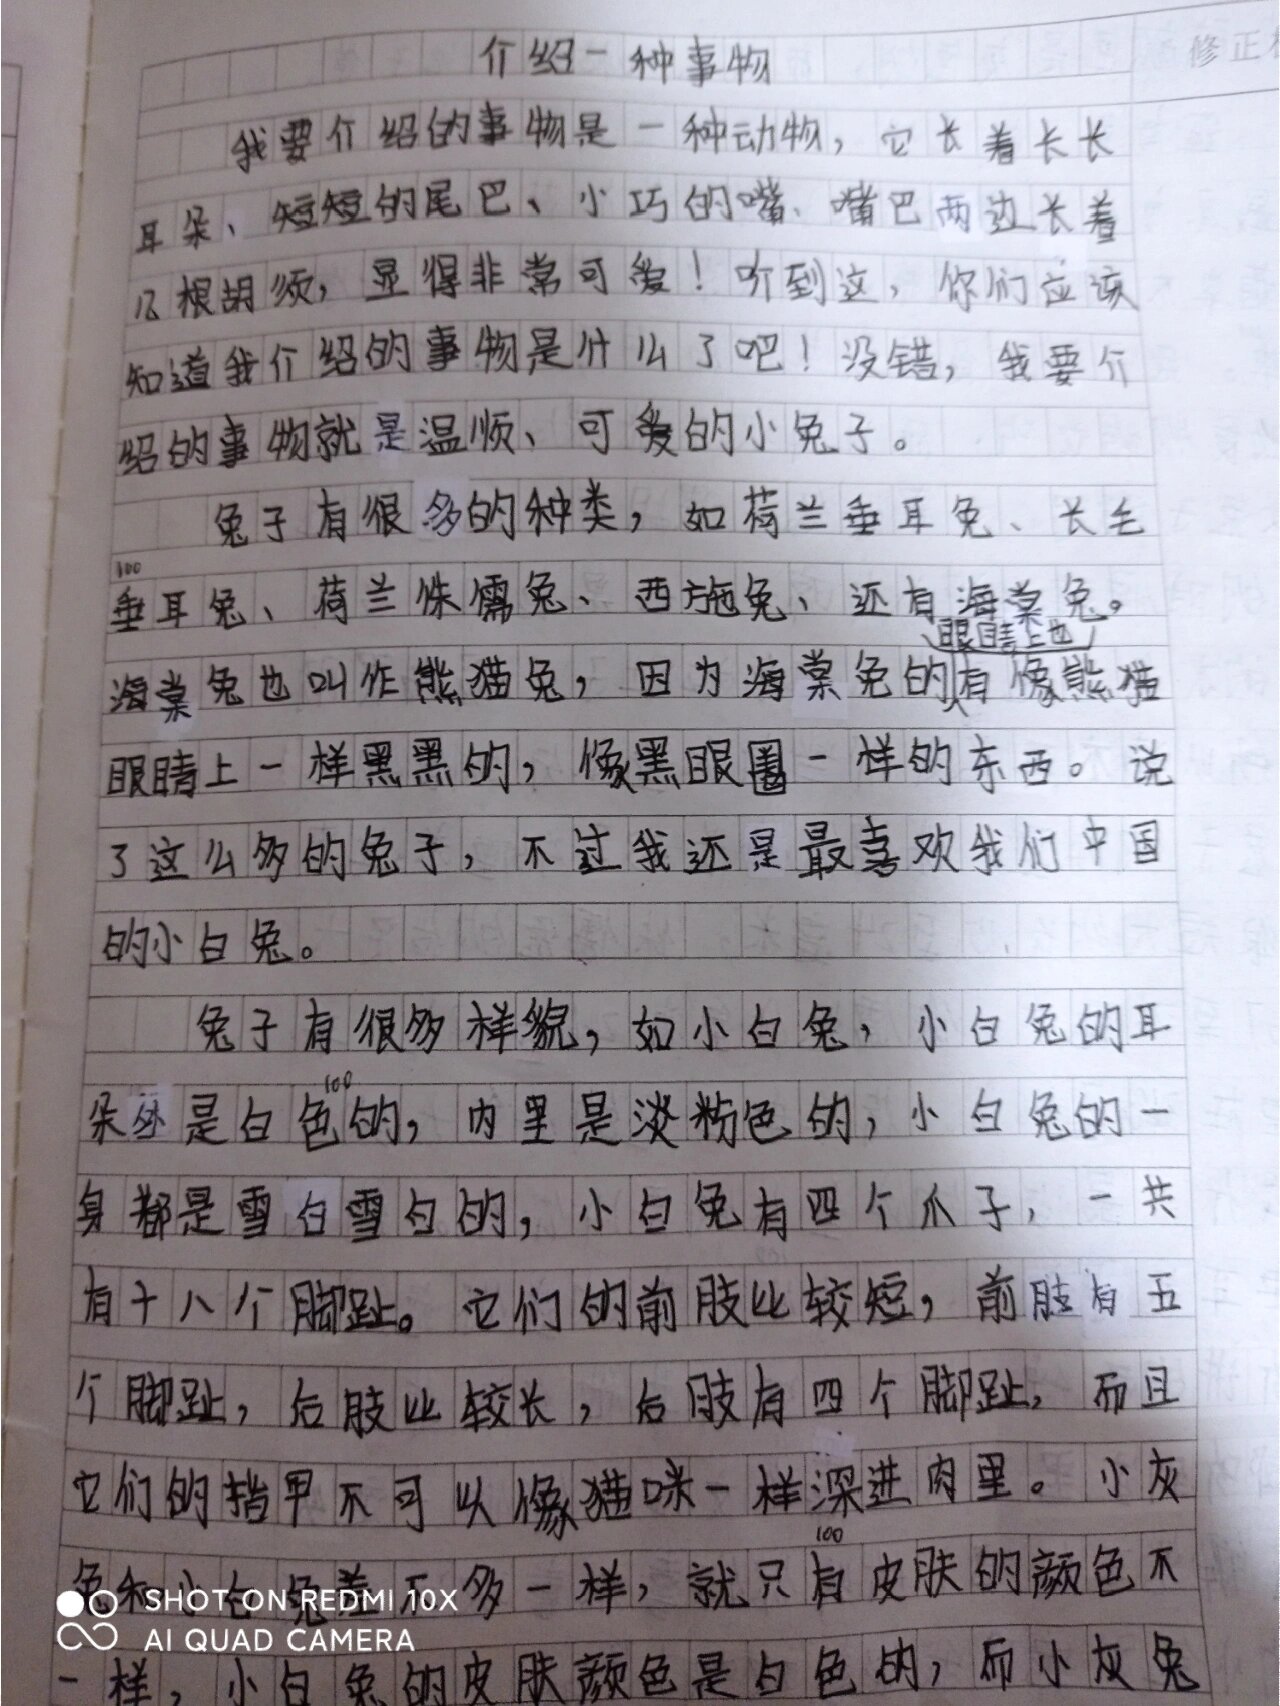 介绍一种事物
修正
我要介绍的事物是一种动物，它长着长长
耳朵、短短的尾巴、小巧的嘴、嘴巴两边长着
几根胡须，显得非常可爱！听到这，你们应该
知道我介绍的事物是什么了吧！没错，我要介
绍的事物就是温顺、可爱的小兔子。
兔子有很多的种类，如荷兰垂耳兔、长毛
100
垂耳兔、荷兰侏儒兔、西施兔、还有海棠兔。
眼睛上也
海棠兔也叫作熊猫兔，因为海棠兔的有像熊猫
眼睛上一样黑黑的，像黑眼圈一样的东西。说
了这么多的兔子，不过我还是最喜欢我们中国
的小白兔。
兔子有很多样貌，如小白兔，小白兔的耳
100
朵外是白色的，内里是淡粉色的，小白兔的一
身都是雪白雪白的，小白兔有四个爪子，一共
有十八个脚趾。它们的前肢比较短，前肢有五
个脚趾，后肢比较长，后肢有四个脚趾，而且
它们的指甲不可以像猫咪一样深进肉里。小灰
100
兔和小白兔差不多一样，就只有皮肤的颜色不
一样，小白兔的皮肤颜色是白色的，而小灰兔
SHOT ON REDMI 10X
AI QUAD CAMERA